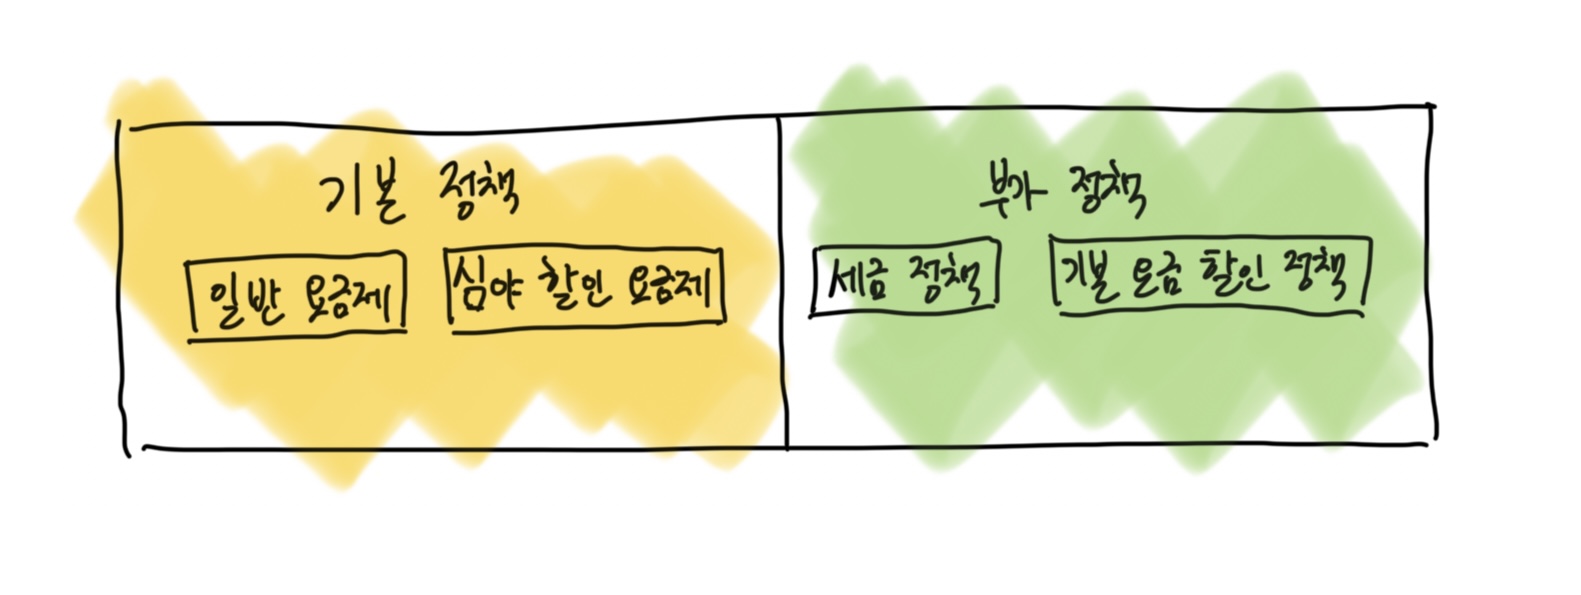 기본 정책
일반 요금제
심야 할인 요금제
부가 정책
세금 정책
기본 요금 할인 정책